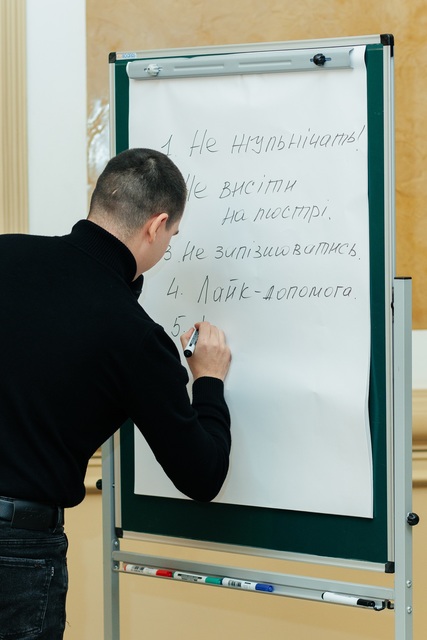 1 Не жульнічать!
Не висіти
на люстрі.
3 Не запізнюватись.
4. Лайк-допомога.
5.